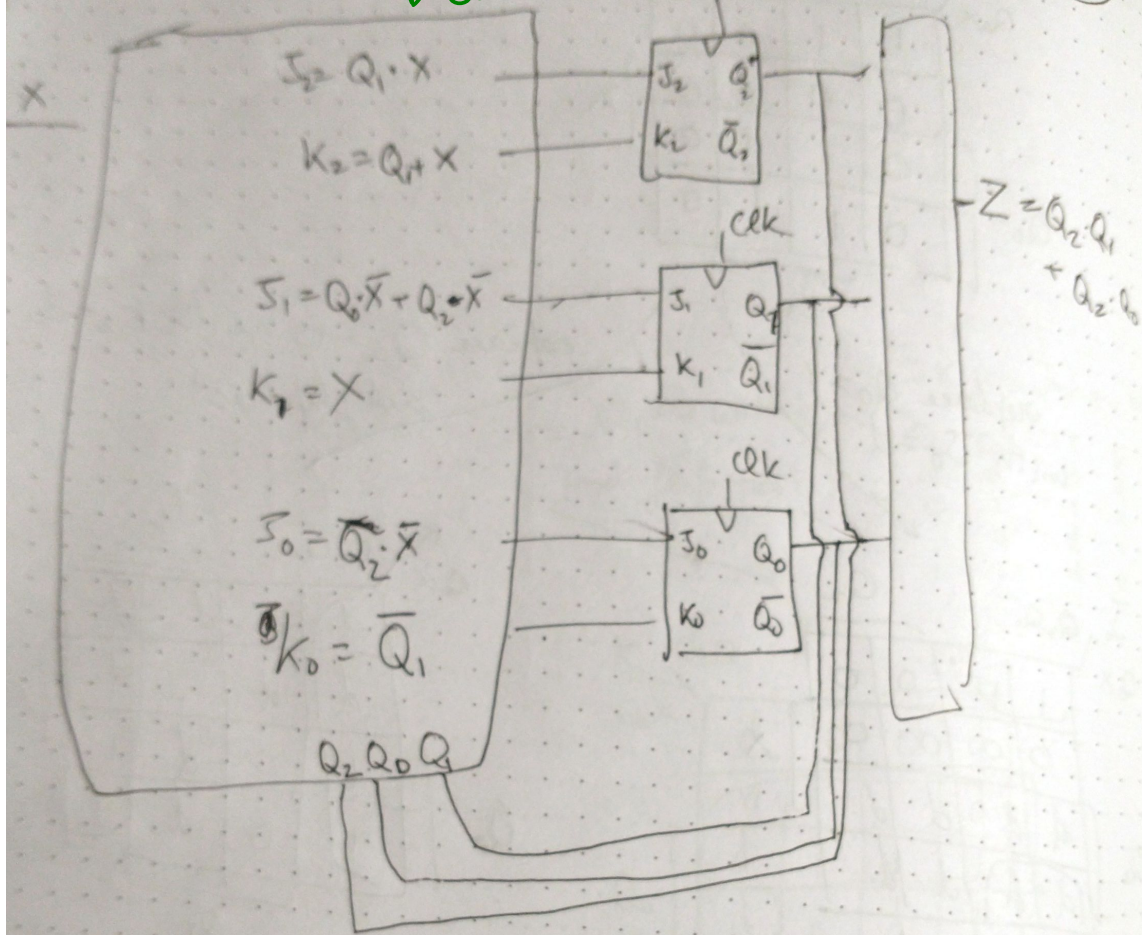 X
J₂ = Q₁·X
K₂ = Q₁+X
J₁ = Q₀·X̄ + Q₂·X̄
K₁ = X
J₀ = Q̄₂·X̄
K₀ = Q̄₁
Q₂ Q₀ Q₁
J₂ Q₂
K₂ Q̄₂
clk
J₁ Q₁
K₁ Q̄₁
clk
J₀ Q₀
K₀ Q̄₀
Z = Q₂·Q₁
+ Q₂·Q₀